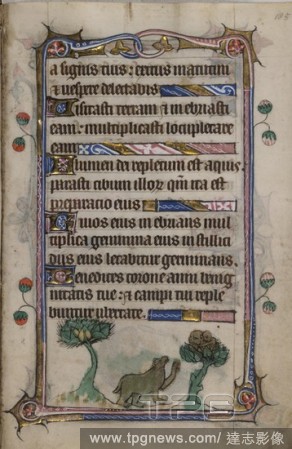 a signis tuis: exitus matutini
& vespere delectabis
Visitasti terram & inebriasti
eam: multiplicasti locupletare
eam
Flumen dei repletum est aquis.
parasti cibum illorum qm ita est
preparatio eius
Rivos eius inebrians mul
tiplica genimina eius in stillici
diis eius letabitur germinans.
Benedices corone anni benig
nitatis tue: & campi tui reple
buntur ubertate.
TPG
www.tpgnews.com/達志影像